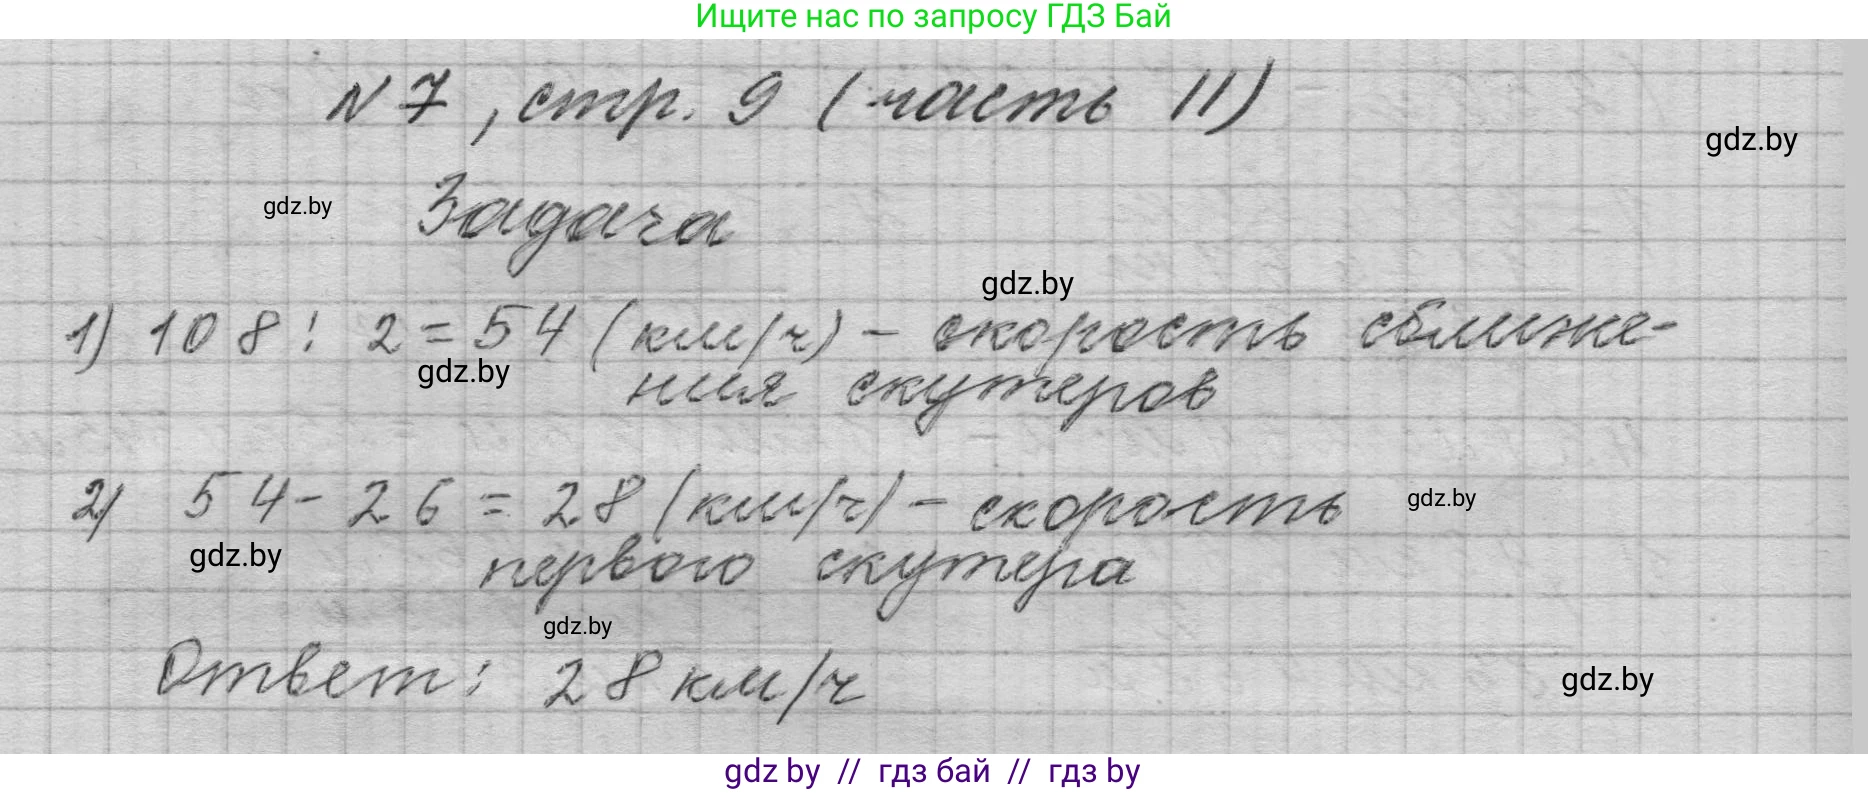 Ищите нас по запросу ГДЗ Бай
N 7, стр. 9 (часть II)
gdz.by
gdz.by
Задача
gdz.by
1) 108 : 2 = 54 (км/ч) – скорость сближе-
gdz.by
ния скутеров
2) 54 - 26 = 28 (км/ч) – скорость
gdz.by
gdz.by
первого скутера
gdz.by
Ответ: 28 км/ч
gdz.by
gdz by // гдз бай // гдз by